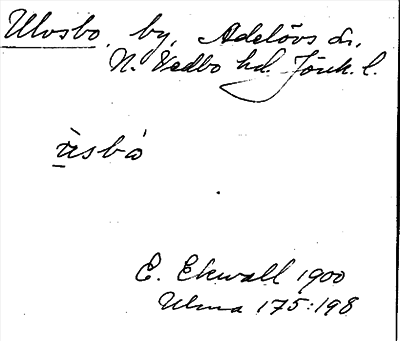 Ulvsbo, by, Adelövs sn,
N. Vedbo hd. Jönk. l.
u̇sbȯ
E. Ekwall 1900
Ulma 175:198